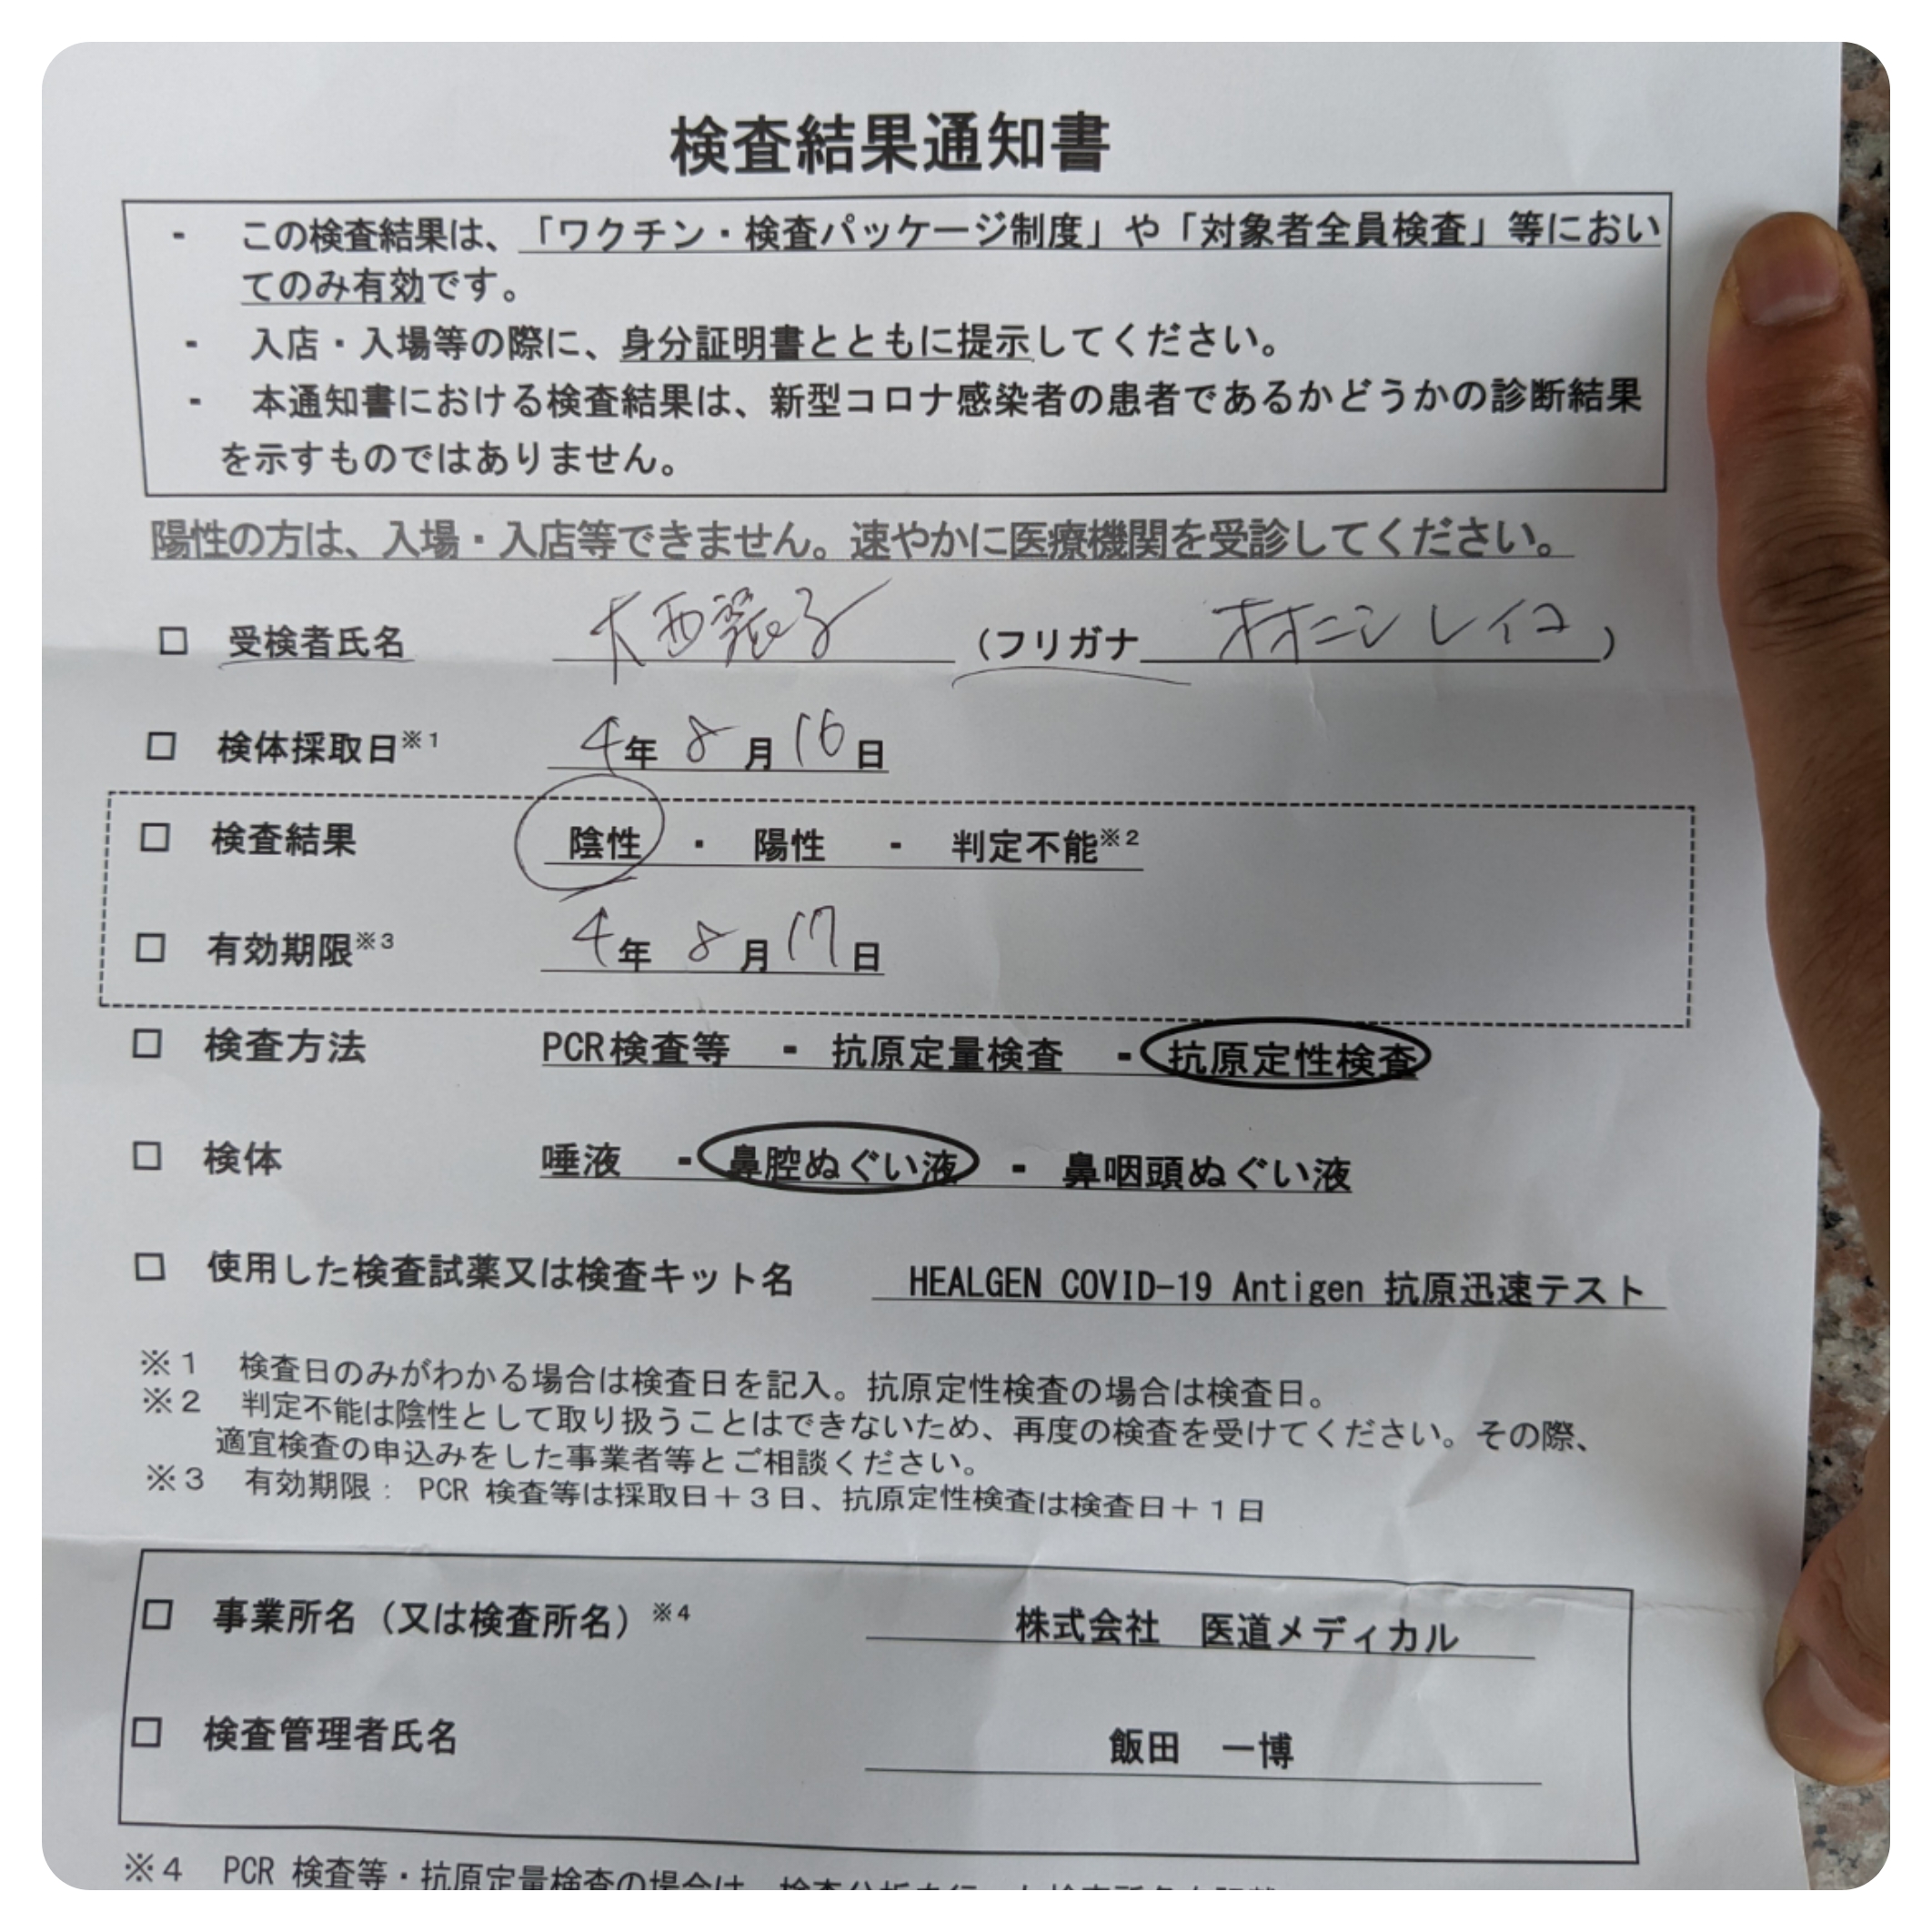 検査結果通知書
- この検査結果は、「ワクチン・検査パッケージ制度」や「対象者全員検査」等におい
てのみ有効です。
- 入店・入場等の際に、身分証明書とともに提示してください。
- 本通知書における検査結果は、新型コロナ感染者の患者であるかどうかの診断結果
を示すものではありません。
陽性の方は、入場・入店等できません。速やかに医療機関を受診してください。
□ 受検者氏名 大西麗子 (フリガナ オオニシ レイコ )
□ 検体採取日※1 4年 8月 16日
□ 検査結果 陰性 ・ 陽性 - 判定不能※2
□ 有効期限※3 4年 8月 17日
□ 検査方法 PCR検査等 - 抗原定量検査 - 抗原定性検査
□ 検体 唾液 - 鼻腔ぬぐい液 - 鼻咽頭ぬぐい液
□ 使用した検査試薬又は検査キット名 HEALGEN COVID-19 Antigen 抗原迅速テスト
※1 検査日のみがわかる場合は検査日を記入。抗原定性検査の場合は検査日。
※2 判定不能は陰性として取り扱うことはできないため、再度の検査を受けてください。その際、
適宜検査の申込みをした事業者等とご相談ください。
※3 有効期限: PCR 検査等は採取日+3日、抗原定性検査は検査日+1日
□ 事業所名(又は検査所名)※4 株式会社 医道メディカル
□ 検査管理者氏名 飯田 一博
※4 PCR 検査等・抗原定量検査の場合は、